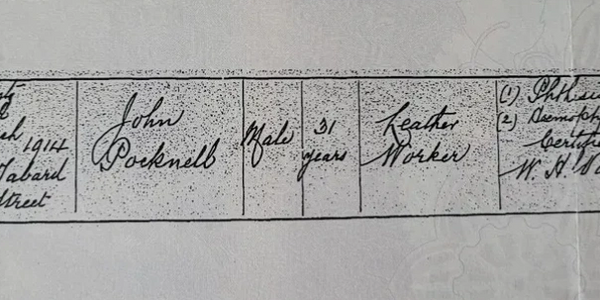 1914
Tabard
Street
John
Pocknell
Male
31
years
Leather
Worker
(1) Phthisi
(2)
Certifi
W. H.